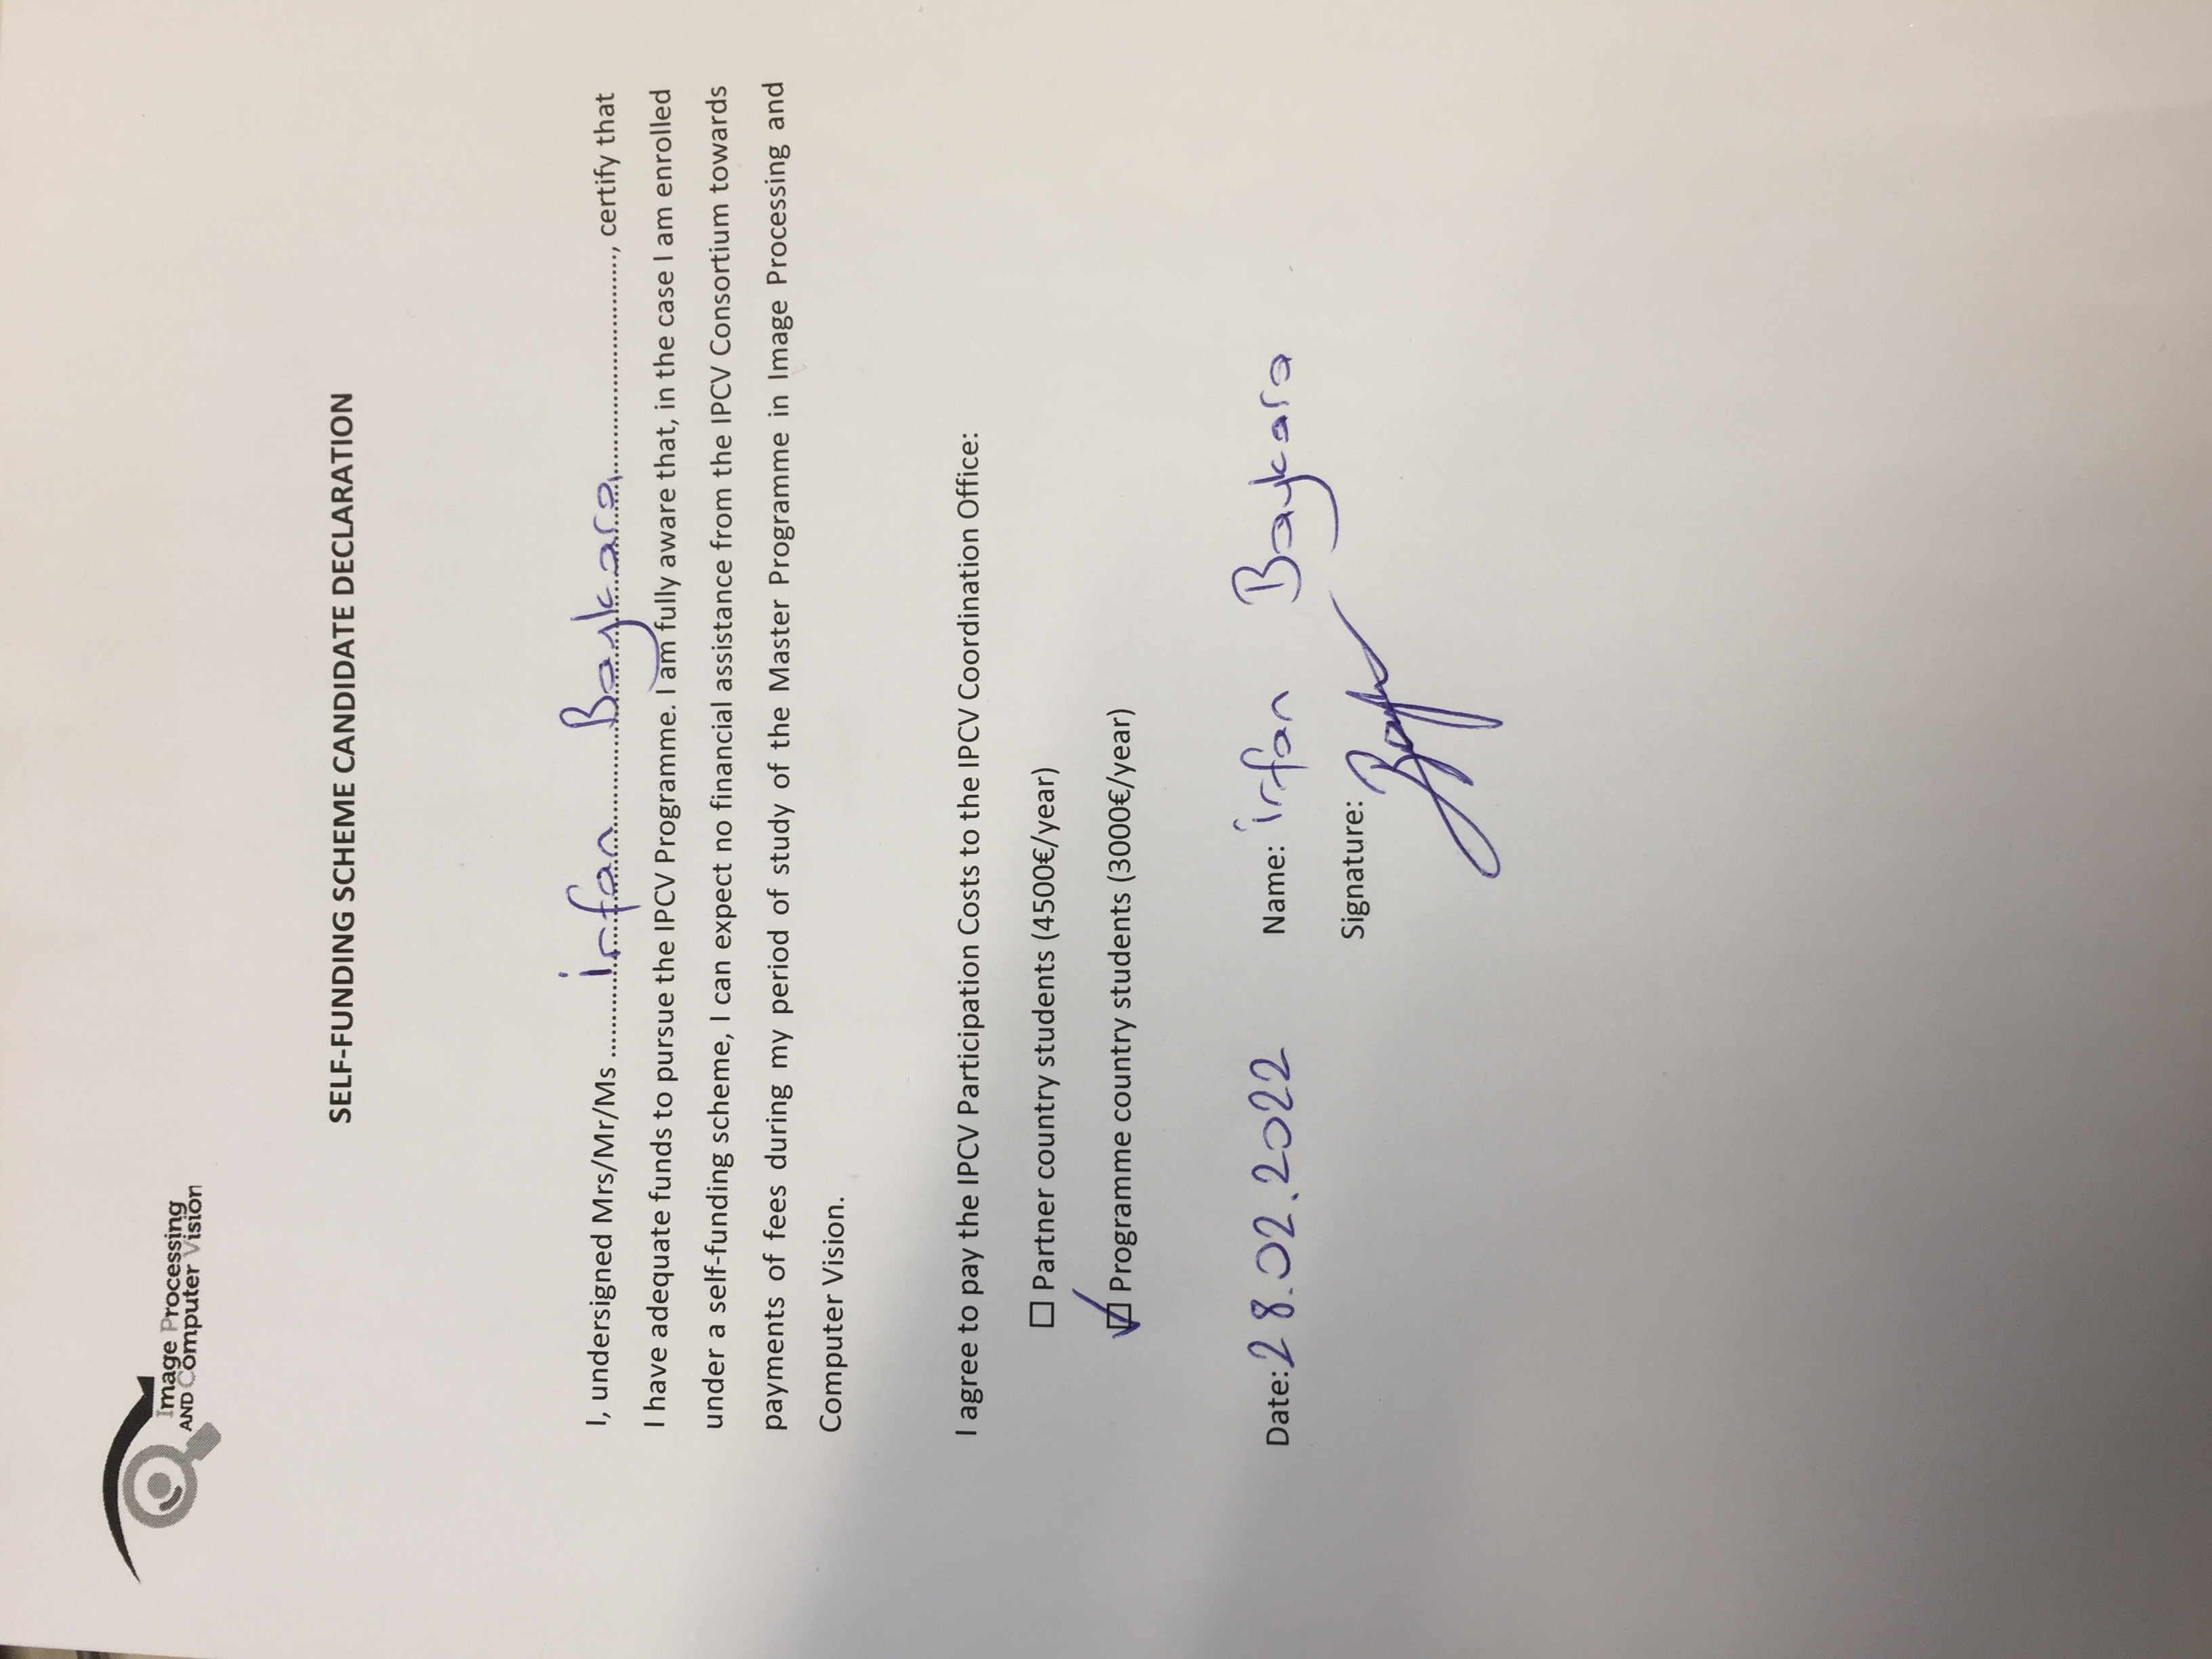 Image Processing
AND Computer Vision
SELF-FUNDING SCHEME CANDIDATE DECLARATION
I, undersigned Mrs/Mr/Ms ........ irfan Baykara ........, certify that
I have adequate funds to pursue the IPCV Programme. I am fully aware that, in the case I am enrolled
under a self-funding scheme, I can expect no financial assistance from the IPCV Consortium towards
payments of fees during my period of study of the Master Programme in Image Processing and
Computer Vision.
I agree to pay the IPCV Participation Costs to the IPCV Coordination Office:
☐ Partner country students (4500€/year)
☑ Programme country students (3000€/year)
Date: 28.02.2022 Name: irfan Baykara
Signature: